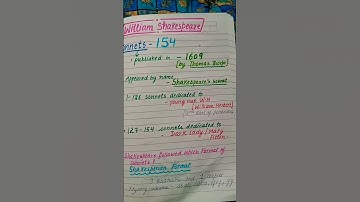 William Shakespeare
onnets - 154
published in - 1609
[by Thomas Thorpe]
Appeared by name
- Shakespeare's Sonnet
1-126 sonnets dedicated to
- young man W.H
(William Herbert)
127-154 sonnets dedicated to
- Dark Lady / Mary
Fitton
Shakespeare followed which Format of
sonnets ?
Shakespearean Format